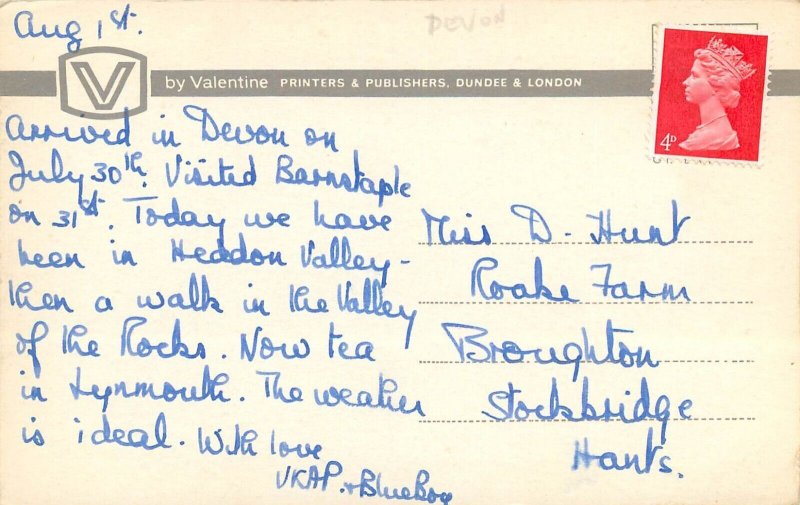 Aug 1st.
DEVON
V by Valentine PRINTERS & PUBLISHERS, DUNDEE & LONDON
4D
Arrived in Devon on
July 30th. Visited Barnstaple
on 31st. Today we have
been in Heddon Valley -
then a walk in the Valley
of the Rocks. Now tea
in Lynmouth. The weather
is ideal. With love
VKAP. + BlueBoy
Miss D. Hunt
Roake Farm
Broughton
Stockbridge
Hants.